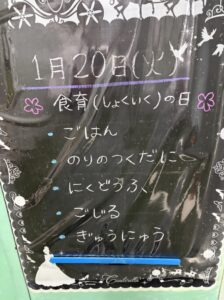 1月20日(火)
食育(しょくいく)の日
・ごはん
・のりのつくだに
・にくどうふ
・ごじる
・ぎゅうにゅう